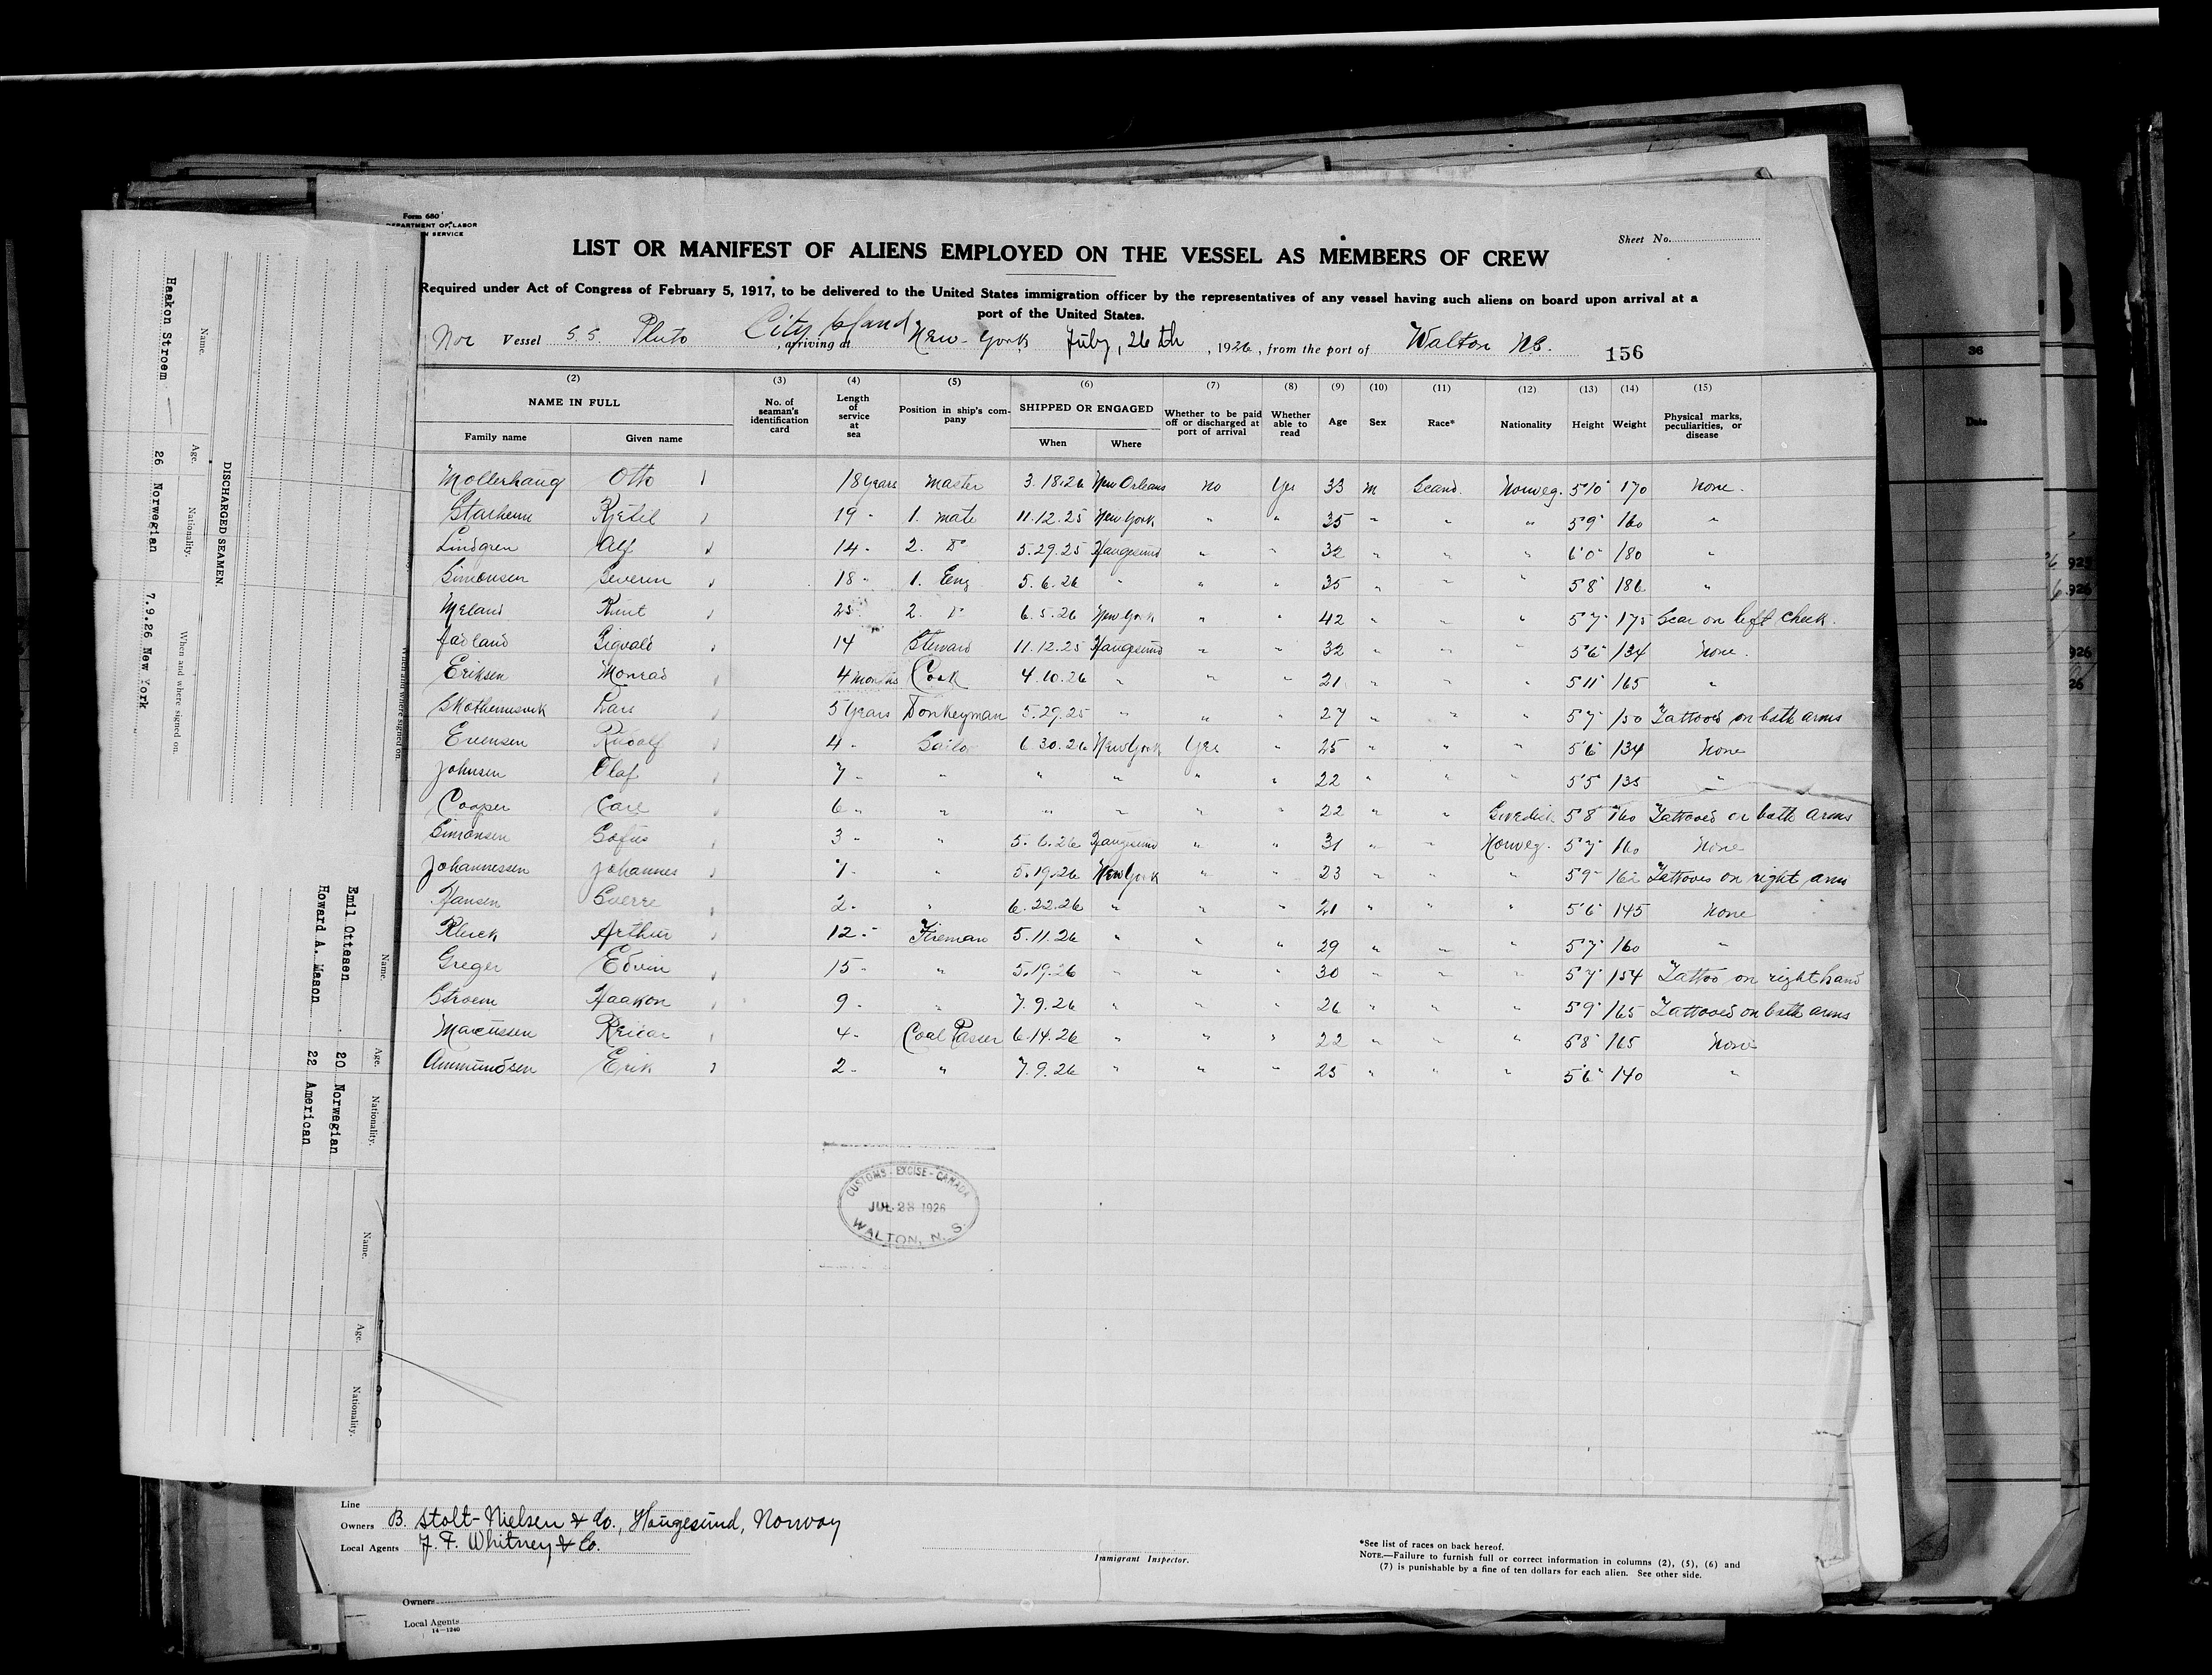 Form 680
DEPARTMENT OF LABOR
N SERVICE
Sheet No.
LIST OR MANIFEST OF ALIENS EMPLOYED ON THE VESSEL AS MEMBERS OF CREW
Required under Act of Congress of February 5, 1917, to be delivered to the United States immigration officer by the representatives of any vessel having such aliens on board upon arrival at a
port of the United States.
Nor Vessel S.S. Pluto City Island , arriving at New-York July, 26th, 1926, from the port of Walton NS. 156
(2) (3) (4) (5) (6) (7) (8) (9) (10) (11) (12) (13) (14) (15)
NAME IN FULL No. of seaman's identification card Length of service at sea Position in ship's company SHIPPED OR ENGAGED Whether to be paid off or discharged at port of arrival Whether able to read Age Sex Race* Nationality Height Weight Physical marks, peculiarities, or disease
Family name Given name When Where
Mollerhaug Otto 18 years Master 3.18.26 New Orleans no Yes 33 m Scand. Norweg. 5'10" 170 None.
Starheim Kjetil 19 " 1. mate 11.12.25 New York " " 35 " " " 5'9" 160 "
Lindgren Alf 14 " 2. D° 5.29.25 Haugesund " " 32 " " " 6'0" 180 "
Simonsen Severin 18 " 1. Eng 5.6.26 " " " 35 " " " 5'8" 186 "
Meland Knut 25 2. D° 6.5.26 New York " " 42 " " " 5'7" 175 Scar on left cheek.
Fadland Sigvald 14 Steward 11.12.25 Haugesund " " 32 " " " 5'6" 134 None.
Eriksen Monrad 4 months Cook 4.10.26 " " " 21 " " " 5'11" 165 "
Lars 5 years Donkeyman 5.29.25 " " " 27 " " " 5'7" 150 Tattooed on both arms
Evensen Rudolf 4 " Sailor 6.30.26 New York Yes " 25 " " " 5'6" 134 None
Johnsen Olaf 7 " " " " " " 22 " " " 5'5" 135 "
Cooper Carl 6 " " " " " " 22 " " Swedish 5'8" 160 Tattooed on both arms
Simonsen Sofus 3 " " 5.6.26 Haugesund " " 31 " " Norweg. 5'7" 160 None
Johannessen Johannes 7 " " 5.19.26 New York " " 23 " " " 5'9" 162 Tattooes on right arm
Hansen Sverre 2 " " 6.22.26 " " " 21 " " " 5'6" 145 None
Arthur 12 " Fireman 5.11.26 " " " 29 " " " 5'7" 160 "
Greger Edvin 15 " " 5.19.26 " " " 30 " " " 5'7" 154 Tattoo on right hand
Stroem Haakon 9 " " 7.9.26 " " " 26 " " " 5'9" 165 Tattooed on both arms
Marcussen 4 " Coal Passer 6.14.26 " " " 22 " " " 5'8" 165 None
Ammundsen Erik 2 " " 7.9.26 " " " 25 " " " 5'6" 140 "
CUSTOMS - EXCISE - CANADA
JUL 23 1926
WALTON, N. S.
Line
Owners B. Stolt-Nielsen & Co., Haugesund, Norway
Local Agents F. F. Whitney & Co.
Immigrant Inspector.
*See list of races on back hereof.
NOTE.—Failure to furnish full or correct information in columns (2), (5), (6) and
(7) is punishable by a fine of ten dollars for each alien. See other side.
Owners
Local Agents
14—1240
DISCHARGED SEAMEN.
Name. Age. Nationality. When and where signed on.
Haakon Stroem 26 Norwegian 7.9.26 New York
When and where signed on.
Name. Age. Nationality.
Emil Ottesen 20 Norwegian
Howard A. Mason 22 American
Name. Age. Nationality.
36
Date